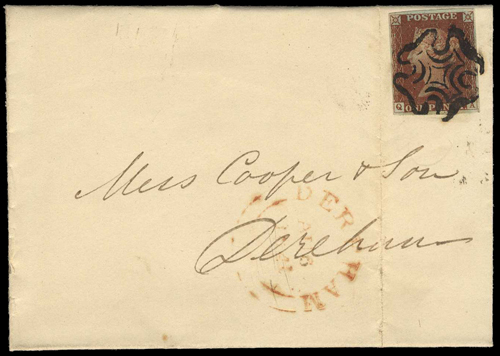 POSTAGE
Q A
Mess Cooper & Son
Dereham
DEREHAM